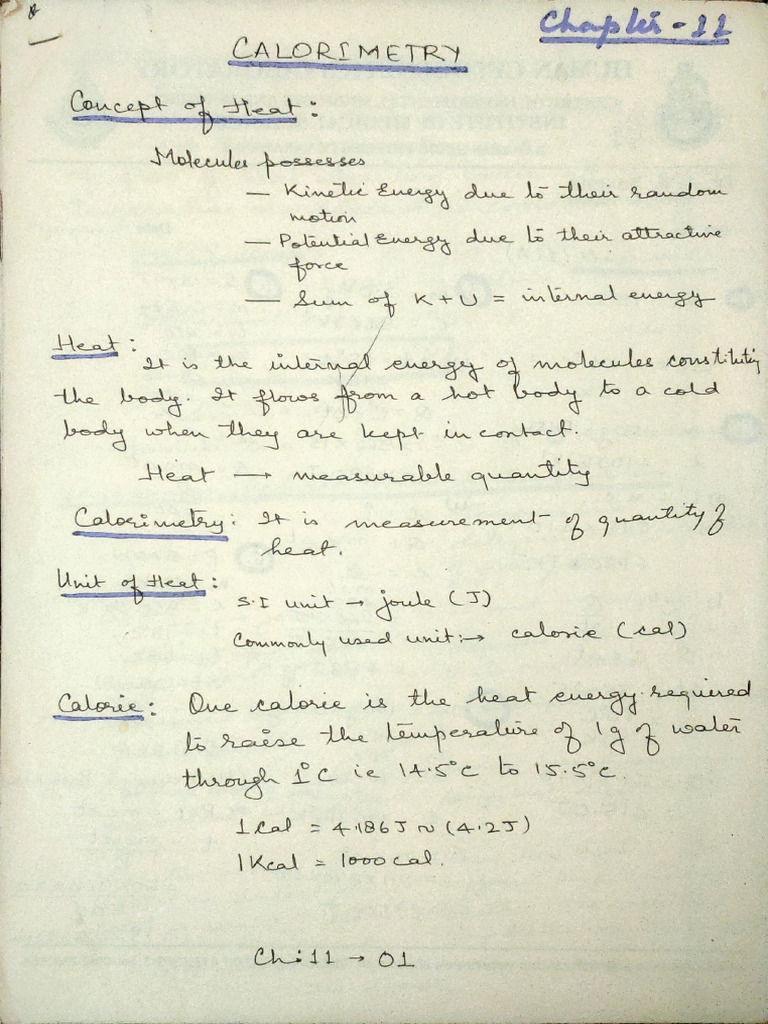 Chapter - 11
CALORIMETRY
Concept of Heat :
Molecules possesses
— Kinetic Energy due to their random
motion
— Potential Energy due to their attractive
force
— Sum of K + U = internal energy
Heat :
It is the internal energy of molecules constituting
the body. It flows from a hot body to a cold
body when they are kept in contact.
Heat → measurable quantity
Calorimetry : It is measurement of quantity of
heat.
Unit of Heat :
S.I unit → joule (J)
Commonly used unit :→ calorie (cal)
Calorie : One calorie is the heat energy required
to raise the temperature of 1g of water
through 1°C ie 14.5°C to 15.5°C.
1 Cal = 4.186J ~ (4.2J)
1 Kcal = 1000 cal.
Ch: 11 → 01